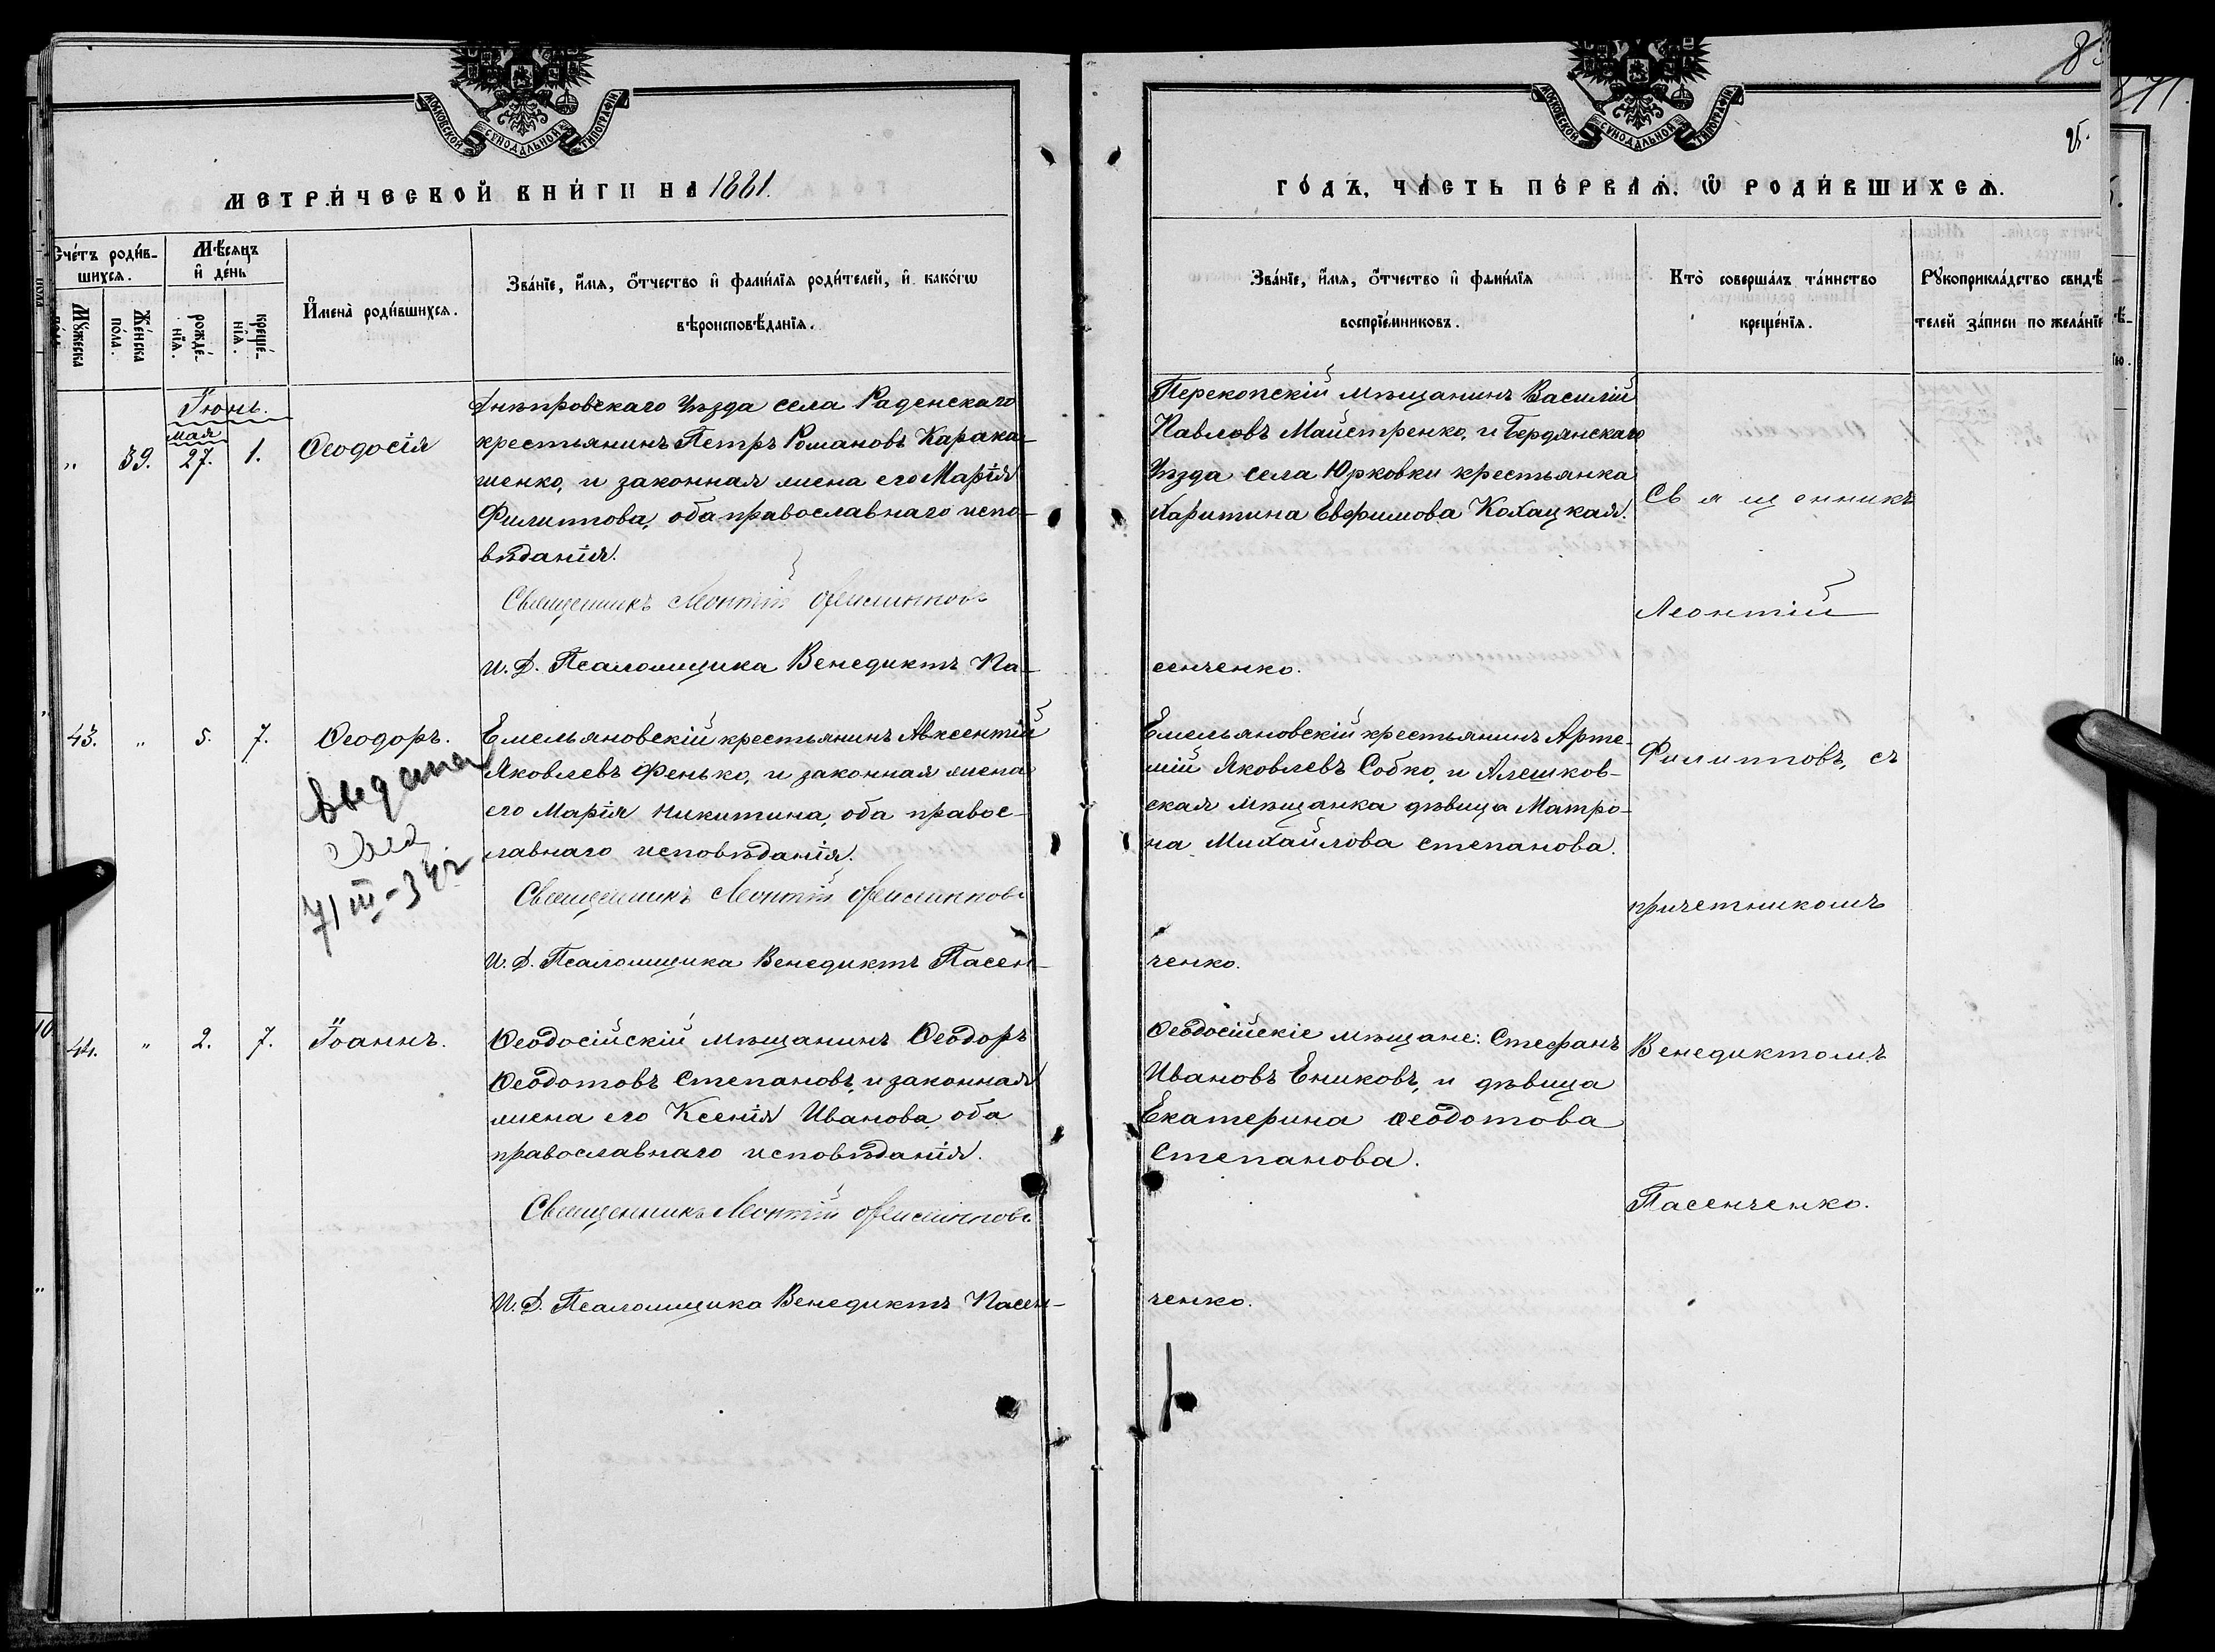 МОСКОВСКОЙ СѴНОДАЛЬНОЙ ТИПОГРАФІИ
МЕТРИ́ЧЕСКОЙ КНИ́ГИ НА 1881.
Счéтъ роди́в-
шихсѧ.
Мѣ́сѧцъ
и҆ де́нь
Мꙋ́жеска
по́ла.
Же́нска
по́ла.
рожде́-
нїѧ.
креще́-
нїѧ.
И҆мена̀ роди́вшихсѧ.
Зва́нїе, и҆́мѧ, ѻ҆́тчество и҆ фами́лїѧ роди́телей, и҆ како́гѡ
вѣроисповѣ́данїѧ.
Іюнь.
мая
" 39. 27. 1. Ѳеодосія
Днѣпровскаго Уѣзда села Раденскаго
крестьянинъ Петръ Романовъ Карака-
шенко, и законная жена его Марія
Филиппова, оба православнаго испо-
вѣданія.
Священникъ Леонтій Филипповъ
И. Д. Псаломщика Венедиктъ Па-
43. " 5. 7. Ѳеодоръ.
Емельяновскій крестьянинъ Авксентій
Яковлевъ Фенько, и законная жена
его Марія Никитина, оба правос-
лавнаго исповѣданія.
Священникъ Леонтій Филипповъ
И. Д. Псаломщика Венедиктъ Пасен-
выдана
7/III-34 г
44. " 2. 7. Іоаннъ.
Ѳеодосійскій мѣщанинъ Ѳеодоръ
Ѳеодотовъ Степановъ, и законная
жена его Ксенія Иванова, оба
православнаго исповѣданія.
Священникъ Леонтій Филипповъ
И. Д. Псаломщика Венедиктъ Пасен-
МОСКОВСКОЙ СѴНОДАЛЬНОЙ ТИПОГРАФІИ
25.
ГО́ДЪ, ЧА́СТЬ ПЕ́РВАѦ, Ѡ҆ РОДИ́ВШИХСѦ.
Зва́нїе, и҆́мѧ, ѻ҆́тчество и҆ фами́лїѧ
воспрїе́мниковъ.
Кто̀ соверша́лъ та́инство
креще́нїѧ.
Рꙋкоприкла́дство свидѣ́
телей за́писи по жела́нїю
Перекопскій мѣщанинъ Василій
Павловъ Майстренко, и Бердянскаго
Уѣзда села Юрковки крестьянка
Харитина Евфимова Кохацкая.
сенченко.
Емельяновскій крестьянинъ Арте-
мій Яковлевъ Собко, и Алешков-
ская мѣщанка дѣвица Матро-
на Михайлова Степанова.
ченко.
Ѳеодосійскіе мѣщане: Стефанъ
Ивановъ Ениковъ, и дѣвица
Екатерина Ѳеодотова
Степанова.
ченко.
Священникъ
Леонтій
Филипповъ, съ
причетникомъ
Венедиктомъ
Пасенченко.